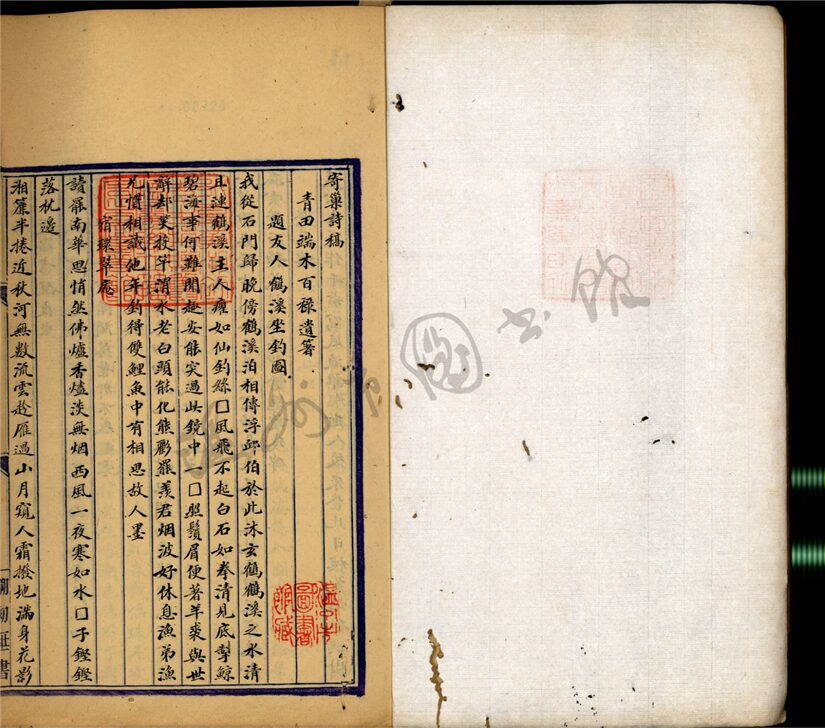 寄巢詩稿
青田端木百祿遺箸
題友人鶴溪坐釣圖
我從石門歸晚傍鶴溪泊相傳浮邱伯於此沐玄鶴鶴溪之水清
且漣鶴溪主人癯如仙釣絲囗風飛不起白石如拳清見底掣鯨
碧海事何難閒趣安能突過此鏡中一囗照鬚眉便著羊裘與世
辭却笑投竿渭水老白頭能化熊羆羨君烟波好休息漁弟漁
兄慣相識他年釣得雙鯉魚中有相思故人墨
宿環翠庵
讀罷南華思悄然佛爐香燼淡無烟西風一夜寒如水囗子鏗鏗
落枕邊
湘簾半捲近秋河無數流雲趁雁過山月窺人霜撥地滿身花影
溫州市圖書館藏